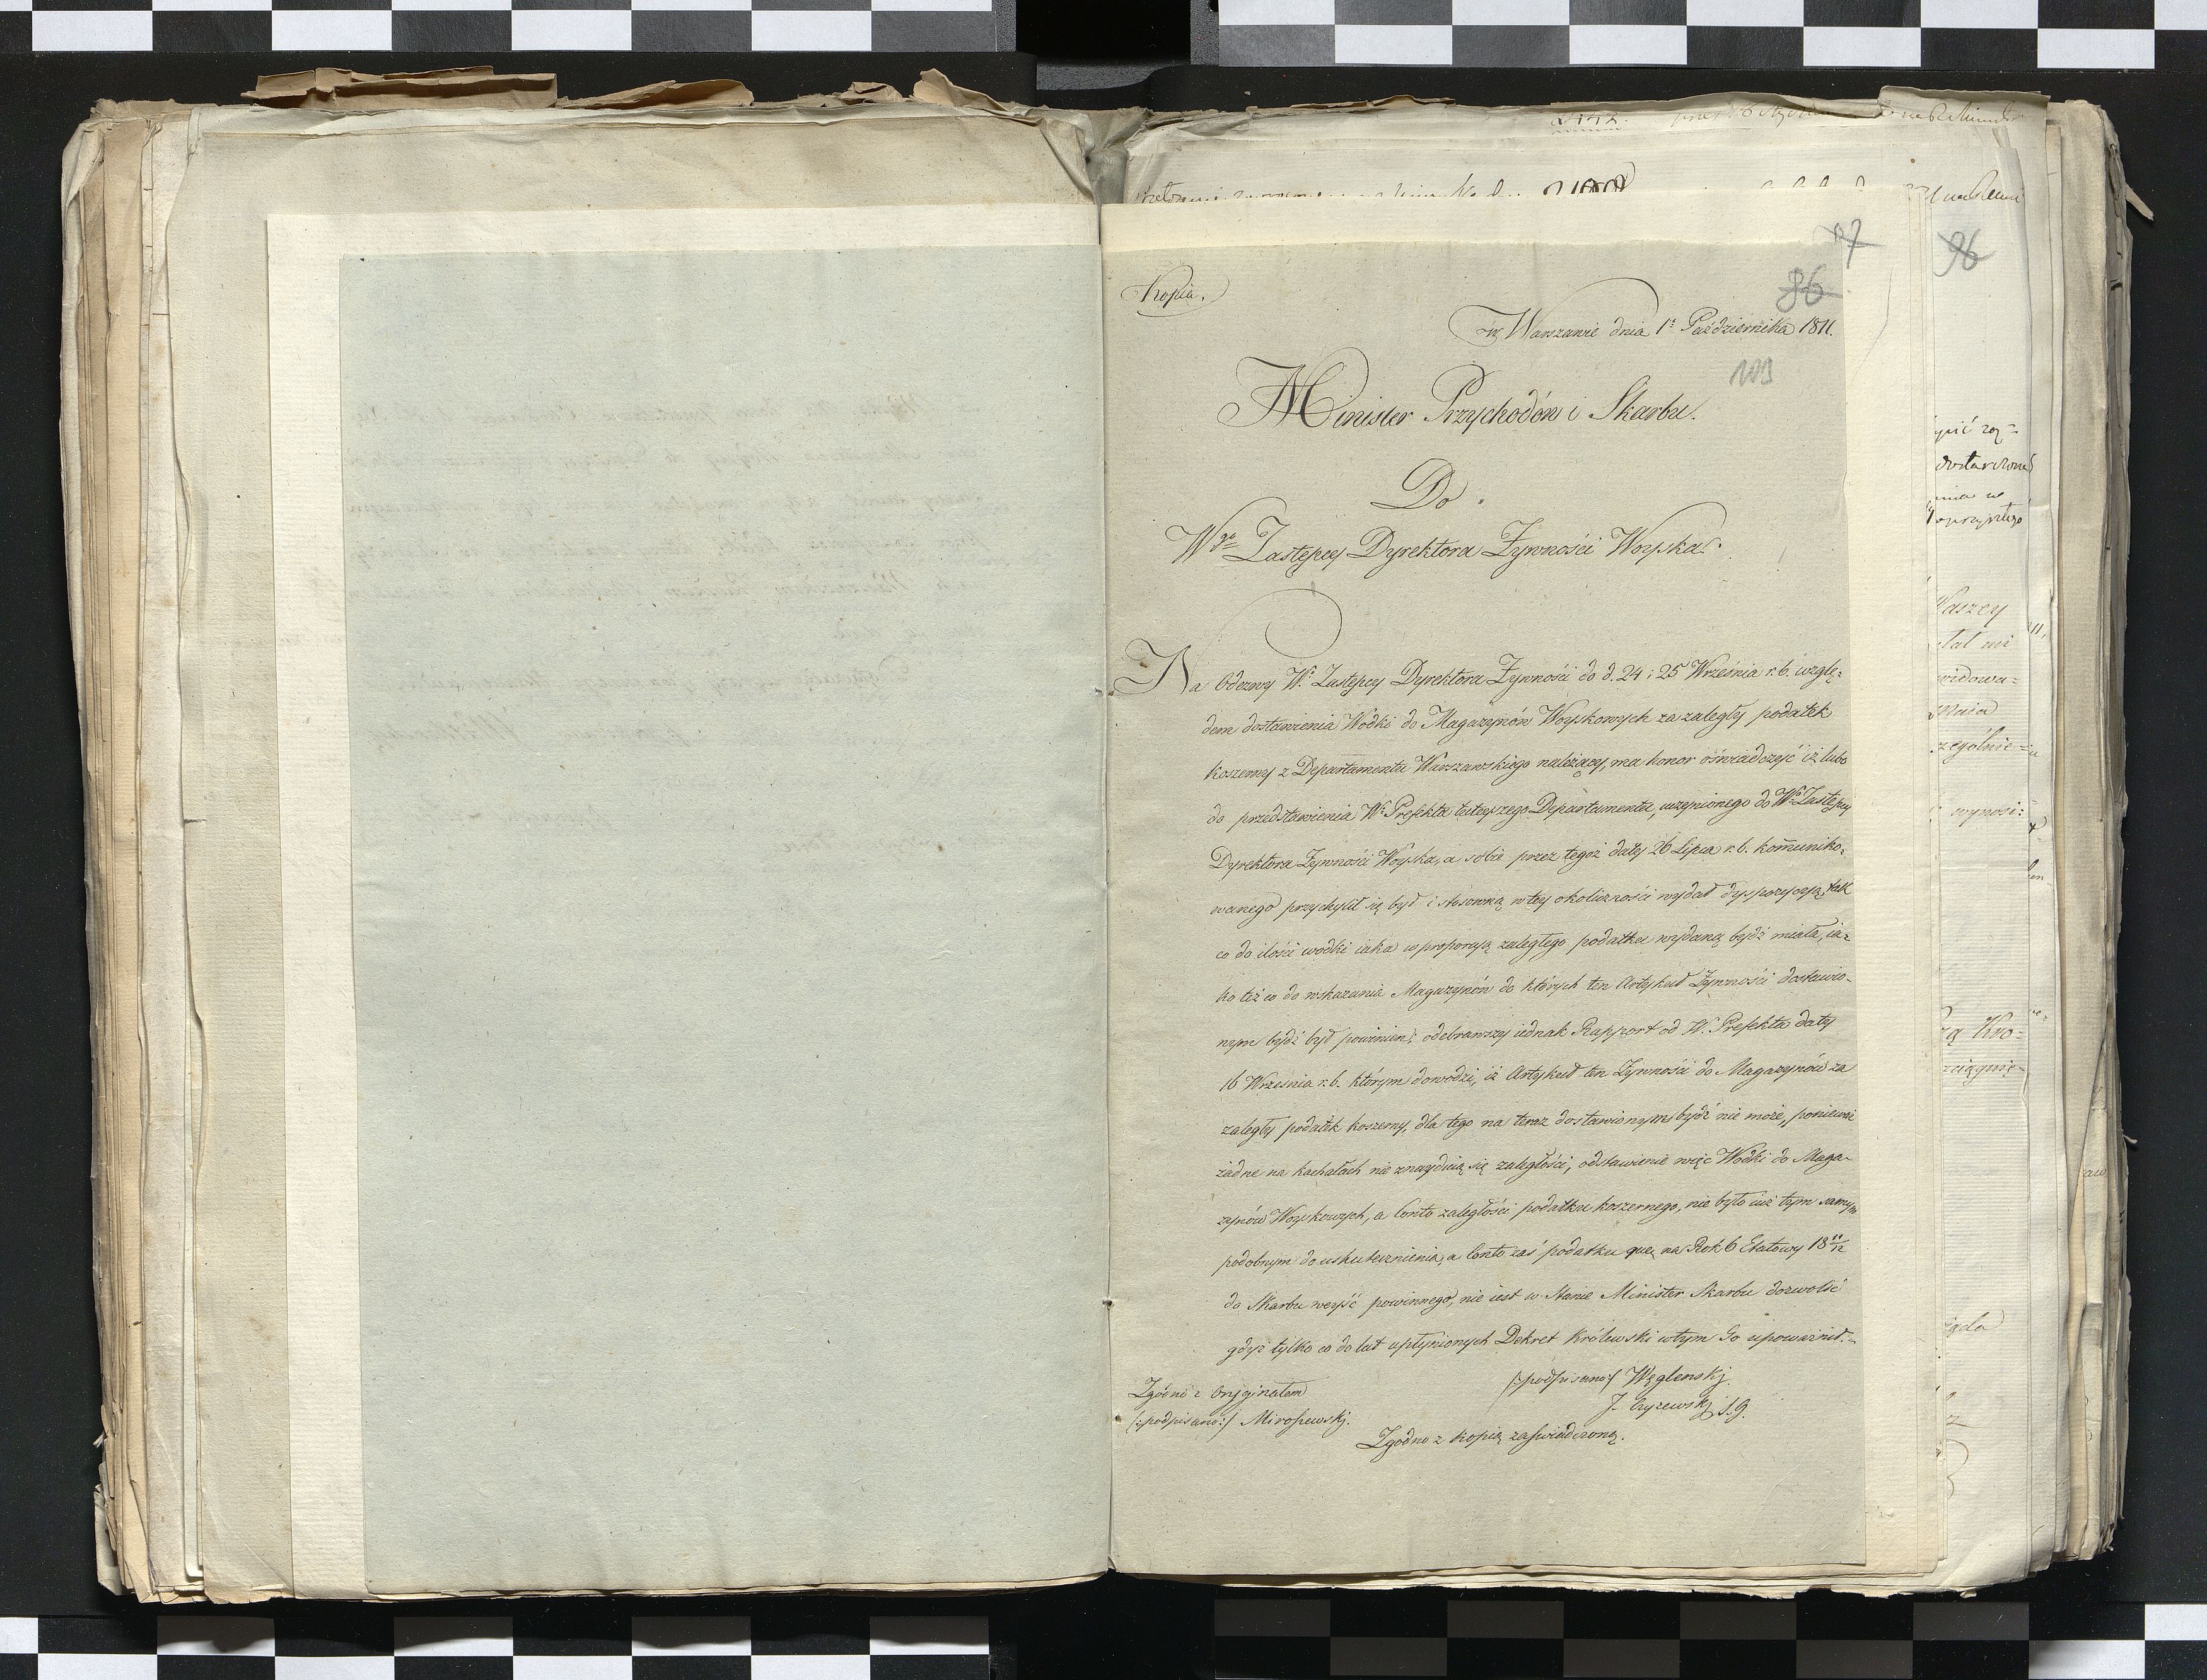 Kopia.
97
86
w Warszawie dnia 1° Października 1811.
103
Minister Przychodów i Skarbu.
Do
Wgo Zastępcy Dyrektora Żywności Woyska.
Na Odezwy W. Zastępcy Dyrektora Żywności do d. 24 i 25 Września r. b. wzglę-
dem dostawienia Wódki do Magazynów Woyskowych za zaległy podatek
koszerny z Departamentu Warszawskiego należący, ma honor oświadczyć iż lubo
do przedstawienia W. Prefekta tuteyszego Departamentu, uczynionego do W. Zastępcy
Dyrektora Żywności Woyska, a sobie przez tegoż daty 26 Lipca r. b. kommuniko-
wanego przychylił się był i stosowną w tey okoliczności wydał dyspozycyą, tak
co do ilości wódki iaka w proporcyą zaległego podatku wydaną bydź miała, ia-
ko też co do wskazania Magazynów do których ten Artykuł Żywności dostawio-
nym bydź był powinien; odebrawszy iednak Rapport od W. Prefekta daty
16 Września r. b. którym dowodzi, iż Artykuł ten Żywności do Magazynów za
zaległy podatek koszerny, dla tego na teraz dostawionym bydź nie może, ponieważ
żadne na kachałach nie znayduią się zaległości, odstawienie więc Wódki do Maga-
zynów Woyskowych, a Conto zaległości podatku koszernego, nie było iuż tym samym
podobnym do uskutecznienia, a Conto zaś podatku que na Rok 6 Etatowy 18 11/12
do Skarbu weyść powinnego, nie iest w Stanie Minister Skarbu dozwolić
gdyż tylko co do lat upłynionych Dekret Królewski w tym Go upoważnił.
/:podpisano:/ Węglenskj.
J. Czyzewskj S. G.
Zgodno z Oryginałem
/:podpisano:/ Miroszewskj.
Zgodno z kopią zaświadczoną.
96